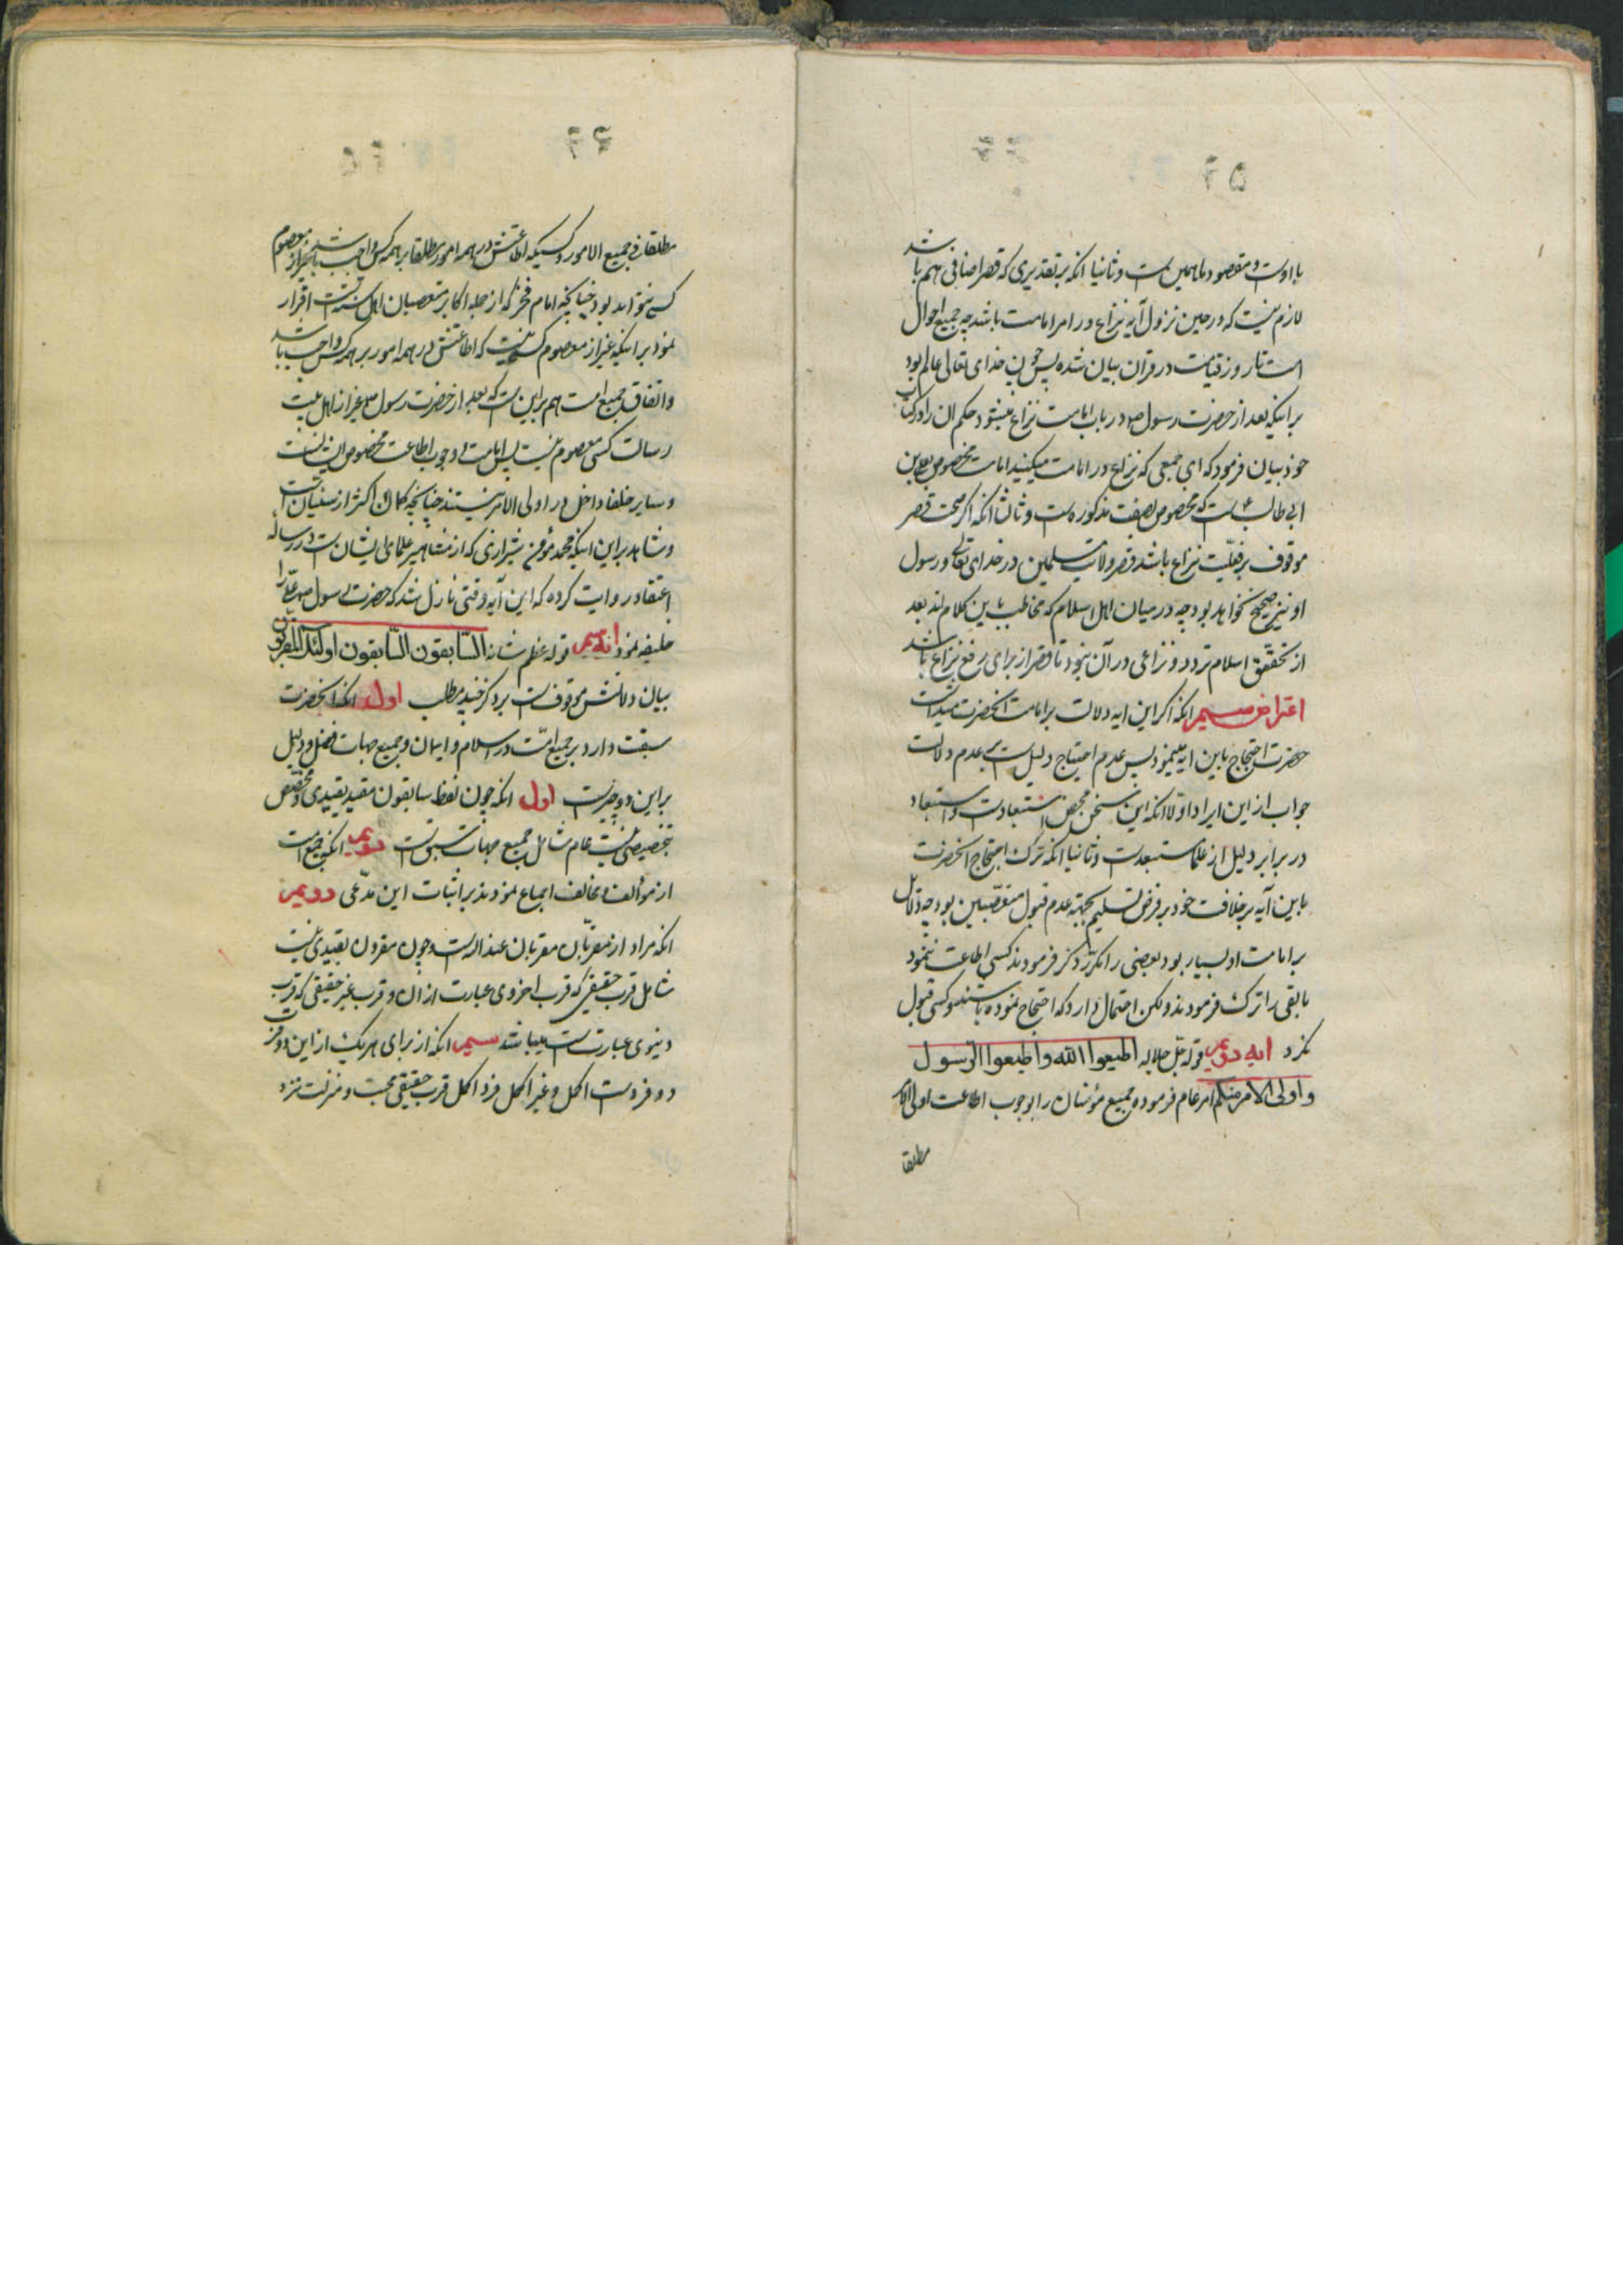 ۵۶
با اوست و مقصود ما همین است و ثانیا انکه بر تقدیری که قصر اضافی هم باشد
لازم نیست که در حین نزول آیه نزاع در امر امامت باشد چه جمیع احوال
امت تا روز قیامت در قران بیان شده پس چون خدای تعالی عالم بود
بر اینکه بعد از حضرت رسول ص در باب امامت نزاع میشود حکم ان را در کتاب
خود بیان فرمود که ای جمعی که نزاع در امامت میکنید امامت مخصوص بعلی بن
ابی طالب است که مخصوص بصفت مذکوره است و ثالثا انکه اگر صحت قصر
موقوف بر فعلیّت نزاع باشد قصر ولایت مسلمین در خدای تعالی و رسول
او نیز صحیح نخواهد بود چه در میان اهل اسلام که مخاطب باین کلام اند بعد
از تحقّق اسلام تردد و نزاعی در آن نبود تا قصر از برای رفع نزاع باشد
اعتراض سیم انکه اگر این ایه دلالت بر امامت انحضرت میداشت
حضرت احتجاج باین ایه مینمود پس عدم احتجاج دلیل است بر عدم دلالت
جواب از این ایراد اولا انکه این سخن محض استبعاد است و استبعاد
در برابر دلیل از علما مستبعد است و ثانیا انکه ترک احتجاج انحضرت
باین آیه بر خلافت خود بر فرض تسلیم بجهة عدم قبول متعصّبین بود چه دلائل
بر امامت او بسیار بود بعضی را مکرّر ذکر فرمودند کسی اطاعت ننمود
باقی را ترک فرمودند ولکن احتمال دارد که احتجاج نموده باشند و کسی قبول
نکرد ایه دویم قوله جلّ جلاله اطیعوا الله و اطیعوا الرّسول
و اولی الامر منکم امر عام فرموده جمیع مؤمنان را بوجوب اطاعت اولی الامر
مطلقا
مطلقا فی جمیع الامور و کسیکه اطاعتش در همه امور مطلقا بر همه کس واجب باشد بغیر از معصوم
کسی نتواند بود چنانچه امام فخر که از جمله اکابر متعصبان اهل سنّت است اقرار
نمود بر اینکه غیر از معصوم کسی نیست که اطاعتش در همه امور بر همه کس واجب باشد
و اتفاق جمیع امت هم بر این است که بعد از حضرت رسول ص غیر از اهل بیت
رسالت کسی معصوم نیست پس امامت و وجوب اطاعت مخصوص ایشانست
و سایر خلفا داخل در اولی الامر نیستند چنانچه کمان اکثر از سنیان است
و شاهد بر این اینکه محمد مؤمن شیرازی که از مشاهیر علمای ایشان است در رساله
اعتقاد روایت کرده که این آیه وقتی نازل شد که حضرت رسول ص علی را
خلیفه نمود ایه سیم قوله عظم شانه السّابقون السّابقون اولئک المقربون
بیان دلالتش موقوف است بر ذکر چند مطلب اول انکه انحضرت
سبقت دارد بر جمیع امّت در اسلام و ایمان و جمیع جهات فضل و دلیل
بر این دو چیز است اول انکه چون لفظ سابقون مقید بقیدی و مخصص
بتخصیصی نیست عام شامل جمیع جهات سبق است دویم انکه جمیع امت
از مؤالف و مخالف اجماع نمودند بر اثبات این مدّعی دویم
انکه مراد از مقرّبان مقربان عند الله است و چون مقرون بقیدی نیست
شامل قرب حقیقی که قرب اخروی عبارت از ان و قرب غیر حقیقی که قرب
دنیوی عبارت است میباشد سیم انکه از برای هر یک از این دو قرب
دو فرد است اکمل و غیر اکمل فرد اکمل قرب حقیقی محبت و منزلت نزد